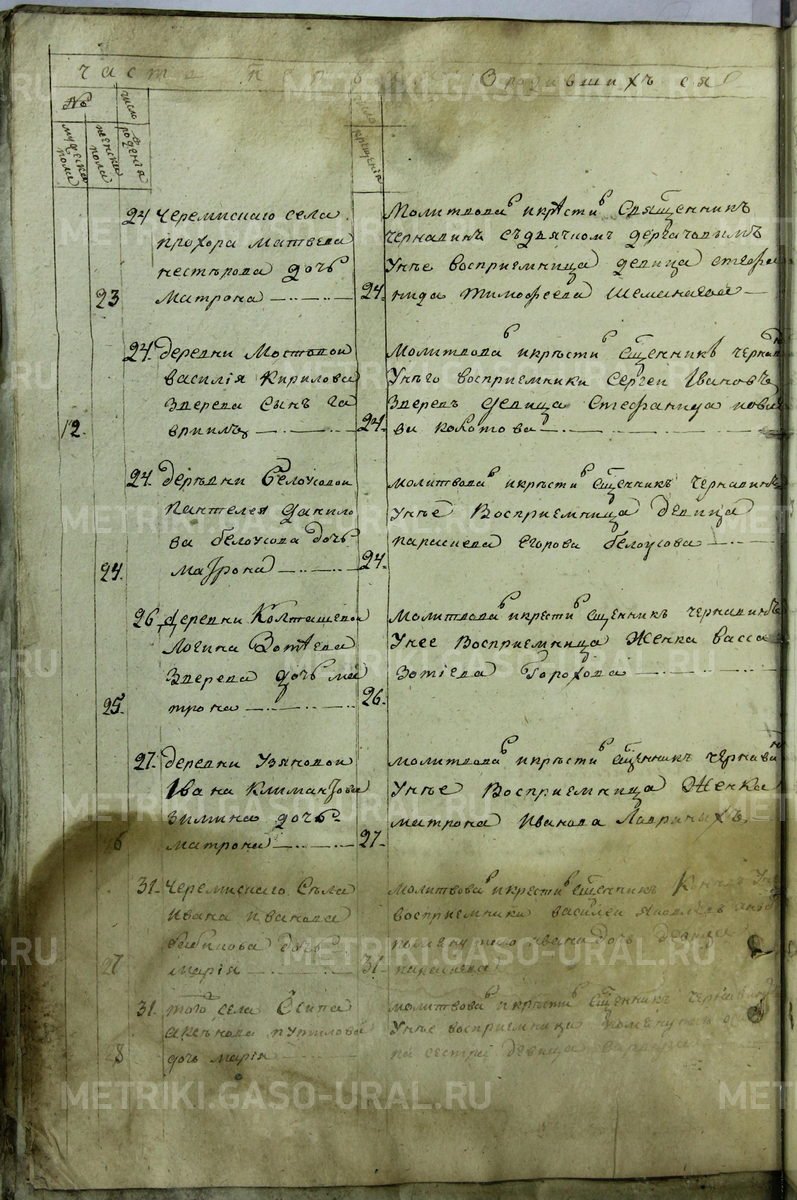 часть первая О родившихъ ся
№
число рождения
мужеска пола
женска пола
число крещения
24 Черемискаго села
Прохора Матвеева
Нестерова дочь
23 Матрона
24. Молитвова и крести Священникъ
Чернавинъ съ дьячкомъ Дергачовымъ
У нее восприемница девица Стефа
нида Тимофеева Шеманаева
24. деревни Мостовой
василия Кирилова
Зверева сынъ Га
12. врiилъ
24. Молитвова и крести Сщенникъ Чернави
У него восприемники Сергеи Ивановъ
Зверевъ девица Стефанида
ва Колотова
24. деревни Белоусовой
Пантелея Данило
ва Белоусова дочь
24. Матрона
24. Молитвова и крести Сщенникъ Чернавинъ
У нее Восприемница девица
Параскева Егорова Белоусова
26 деревни Колташевой
Логина Зотеева
Зверева дочь Ма
25. трона
26. Молитвова и крести Сщенникъ Чернавинъ
У нее Восприемница Женка Васса
Зотiева Горохова
27. деревни Узяновой
Ивана Климантова
Зимина дочь
6 Матрона
27. Молитвова и крести Сщенникъ Чернави
У нее Восприемница Женка
Матрона Иванова Лавриныхъ
31. Черемискаго Села
Ивана Иванова
дочь
27 Мария
31 Молитвова и крести Сщенникъ
восприемники Василеи Яковлевъ
Ивана дочь девица
Параскева
31. того села Осипа
Путилова
28 дочь Мария
Молитвова и крести Сщенникъ Чернавинъ
У нее восприемники
сестра девица
METRIKI.GASO-URAL.RU